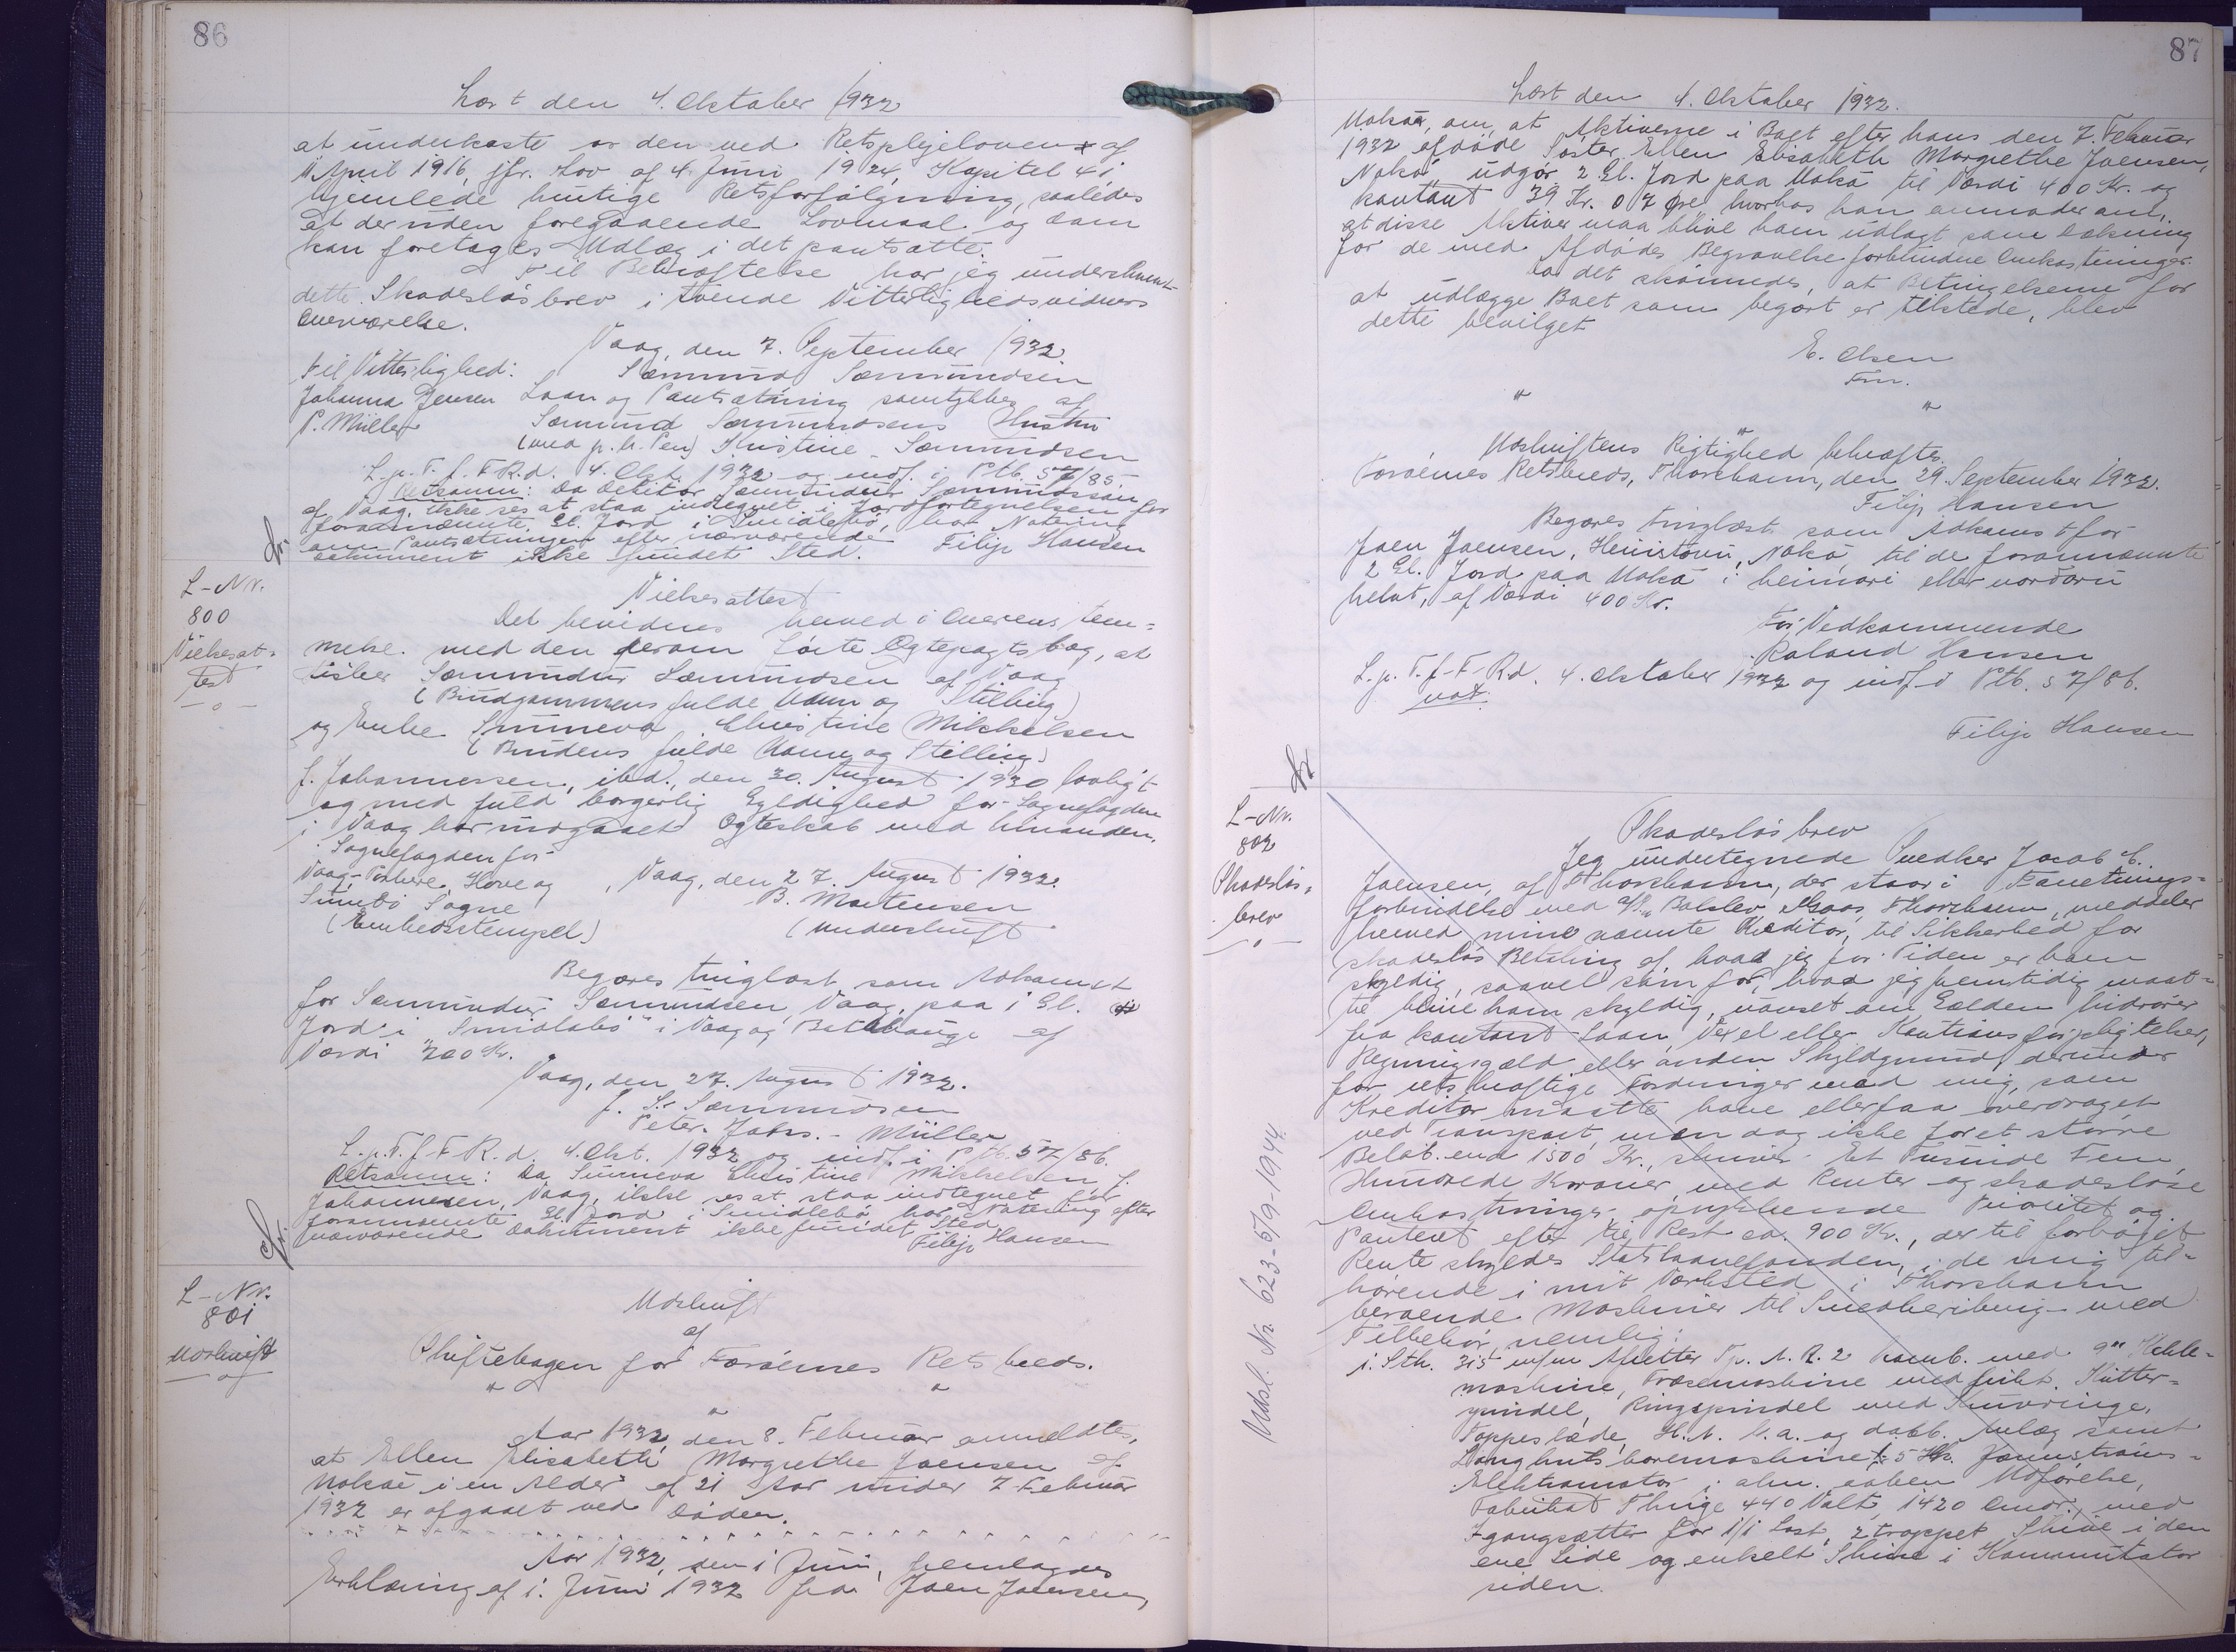 86
Læst den 4. Oktober 1932
at underkaste os den ved Retsplejeloven af
11 April 1916, jfr. Lov af 4. Juni 1924, Kapitel 41
hjemlede hurtige Retsforfølgning, saaledes
at der uden foregaaende Lovmaal og Dom
kan foretages Udlæg i det pantsatte.
Til Bekræftelse har jeg underskrevet
dette Skadesløsbrev i tvende Vitterlighedsvidners
Overværelse.
Vaag, den 7. September 1932.
Til Vitterlighed: Sæmund Sæmundsen
Johanna Jensen Laan og Pantsætning samtykkes af
P. Müller Sæmund Sæmundsens Hustru
(med p. h. Pen) Kristine Sæmundsen
L. p. T. f. F R. d. 4. Okt. 1932 og indf. i Ptb. S 7/85.
Retsanm: Da Debitor Sæmundur Sæmundssøn
af Vaag, ikke ses at staa indtegnet i Jordfortegnelsen for
forannævnte Gl. Jord i Smidlebø, har Notering
om Pantsætningen efter nærværende
Dokument ikke fundet Sted. Filip Hansen
L-Nr.
800
Vielsesat-
test
Vielsesattest
Det bevidnes herved i Overensstem=
melse med den derom førte Ægtepagtsbog, at
Fisker Sæmundur Sæmundsen af Vaag
(Brudgommens fulde Navn og Stilling)
og Enke Sunneva Christine Mikkelsen
(Brudens fulde Navn og Stilling)
f. Johannessen, ibd., den 30. August 1930 lovligt
og med fuld borgerlig Gyldighed for Sognefogden
i Vaag har indgaaet Ægteskab med hinanden.
Sognefogden for
Vaag-Porkere, Hove og , Vaag, den 27. August 1932.
Sumbø Sogne B. Mortensen
(Embedsstempel) (Underskrift
Begæres tinglæst som Adkomst
for Sæmundur Sæmundsen, Vaag, paa 1 Gl.
Jord i "Smidlebø" i Vaag og Botshauge af
Værdi 200 Kr.
Vaag, den 27. August 1932.
f. S. Sæmundsen
Peter Johs. Müller
L. p. T. f. F R. d. 4. Okt. 1932 og indf. i Ptb. S 7/86.
Retsanm: Da Sunneva Christine Mikkelsen f.
Johannesen, Vaag, ikke ses at staa indtegnet for
forannævnte Gl. Jord i Smidlebø, har Notering efter
nærværende Dokument ikke fundet Sted.
Filip Hansen
L-Nr.
801
Udskrift
Udskrift
af
Skiftebogen for Færøernes Retskreds.
Aar 1932, den 8. Februar anmeldtes,
at Ellen Elisabeth Margrethe Joensen af
Nolsø i en Alder af 21 Aar under 7 Februar
1932 er afgaaet ved Døden.
Aar 1932, den 1 Juni, fremlagdes
Erklæring af 1. Juni 1932 fra Joen Joensen,
87
Læst den 4. Oktober 1932.
Nolsø, om, at Aktiverne i Boet efter hans den 7. Februar
1932 afdøde Søster, Ellen Elisabeth Margrethe Joensen,
Nolsø, udgør 2 Gl. Jord paa Nolsø til Værdi 400 Kr. og
kontant 39 Kr. 07 Øre, hvorhos han anmoder om,
at disse Aktiver maa blive ham udlagt som Dækning
for de med Afdødes Begravelse forbundne Omkostninger.
Da det skønnedes, at Betingelserne for
at udlægge Boet som begært er tilstede, blev
dette bevilget
E. Olsen
Fm.
Udskriftens Rigtighed bekræftes.
Færøernes Retskreds, Thorshavn, den 29. September 1932.
Filip Hansen
Begæres tinglæst som Adkomst for
Joen Joensen, Heimistovu, Nolsø, til de forannævnte
2 Gl. Jord paa Nolsø i heimari eller norðaru
helvt, af Værdi 400 Kr.
For Vedkommende
Roland Hansen
L. p. T. f. F R. d. 4. Oktober 1932 og indf. i Ptb. S 7/86.
not.
Filip Hansen
L-Nr.
802
Skadesløs=
brev
Udsl. Nr. 623-5/9-1944
Skadesløsbrev
Jeg undertegnede Snedker Jacob C.
Joensen, af Thorshavn, der staar i Forretnings=
forbindelse med A/S. Balslev, Thorshavn, meddeler
herved min nævnte Kreditor, til Sikkerhed for
skadesløs Betaling af, hvad jeg for Tiden er ham
skyldig, saavel som for, hvad jeg fremtidig maat=
te blive ham skyldig, uanset om Gælden hidrører
fra kontant Laan, Vexel eller Kautionsforpligtelser,
Regningsgæld eller anden Skyldgrund, derunder
for retskraftige Fordringer mod mig, som
Kreditor maatte have eller faa overdraget
ved Transport, men dog ikke for et større
Beløb end 1500 Kr., skriver Et Tusinde Fem
Hundrede Kroner, med Renter og skadesløse
Omkostninger oprykkende Prioritet og
Panteret efter til Rest ca. 900 Kr., der til forhøjet
Rente skyldes Statslaanefonden, i de mig til=
hørende i mit Værksted i Thorshavn
beroende Maskiner til Snedkeribrug med
Tilbehør, nemlig:
1. Stk. 315 m/m Afretter Tp. A. R. 2 komb. med 9" Kehle=
maskine, Fræsemaskine med Kutter=
spindel, Ringspindel med Knivringe,
Tappeslæde, H. A. U. a. og dobb. Anlæg samt
Langhulsboremaskine 1: 5 Hk. Jævnstrøms=
Elektromotor i alm. aaben Udførelse,
Fabrikat Thrige 440 Volt, 1420 Omdr., med
Igangsætter for 1/1 Last, 2 trappet Skive i den
ene Side og enkelt Skive i Kommutator
siden.